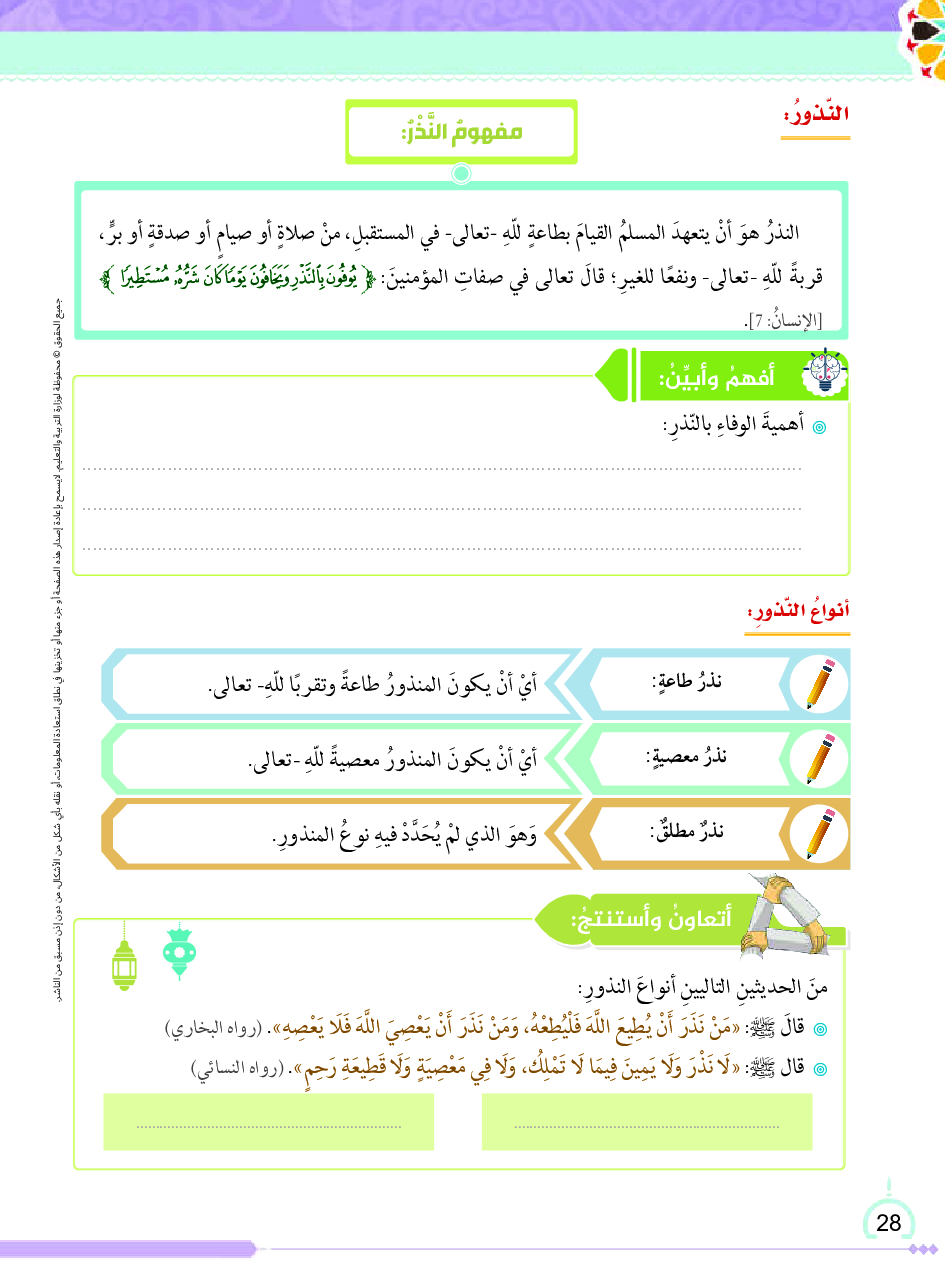 النّذورُ:
مفهومُ النَّذْرُ:
النذرُ هوَ أنْ يتعهدَ المسلمُ القيامَ بطاعةٍ للّهِ -تعالى- في المستقبلِ، منْ صلاةٍ أو صيامٍ أو صدقةٍ أو برٍّ،
قربةً للّهِ -تعالى- ونفعًا للغيرِ؛ قالَ تعالى في صفاتِ المؤمنينَ: ﴿ يُوفُونَ بِالنَّذْرِ وَيَخَافُونَ يَوْمًا كَانَ شَرُّهُ مُسْتَطِيرًا ﴾
[الإنسانُ: 7].
أفهمُ وأبيِّنُ:
أهميةَ الوفاءِ بالنّذرِ:
أنواعُ النّذورِ:
نذرُ طاعةٍ:
أيْ أنْ يكونَ المنذورُ طاعةً وتقربًا للّهِ- تعالى.
نذرُ معصيةٍ:
أيْ أنْ يكونَ المنذورُ معصيةً للّهِ -تعالى.
نذرٌ مطلقٌ:
وَهوَ الذي لمْ يُحَدَّدْ فيهِ نوعُ المنذورِ.
أتعاونُ وأستنتجُ:
منَ الحديثينِ التاليينِ أنواعَ النذورِ:
قالَ ﷺ: «مَنْ نَذَرَ أَنْ يُطِيعَ اللَّهَ فَلْيُطِعْهُ، وَمَنْ نَذَرَ أَنْ يَعْصِيَ اللَّهَ فَلَا يَعْصِهِ». (رواه البخاري)
قال ﷺ: «لَا نَذْرَ وَلَا يَمِينَ فِيمَا لَا تَمْلِكُ، وَلَا فِي مَعْصِيَةٍ وَلَا قَطِيعَةِ رَحِمٍ». (رواه النسائي)
جميع الحقوق © محفوظة لوزارة التربية والتعليم. لايسمح بإعادة إصدار هذه الصفحة أو جزء منها أو تخزينها في نطاق استعادة المعلومات، أو نقله بأي شكل من الأشكال، من دون إذن مسبق من الناشر.
28